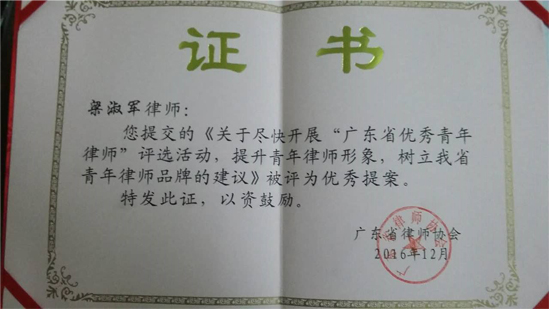 证书
梁淑军律师：
您提交的《关于尽快开展“广东省优秀青年
律师”评选活动，提升青年律师形象，树立我省
青年律师品牌的建议》被评为优秀提案。
特发此证，以资鼓励。
广东省律师协会
2016年12月
广东省律师协会